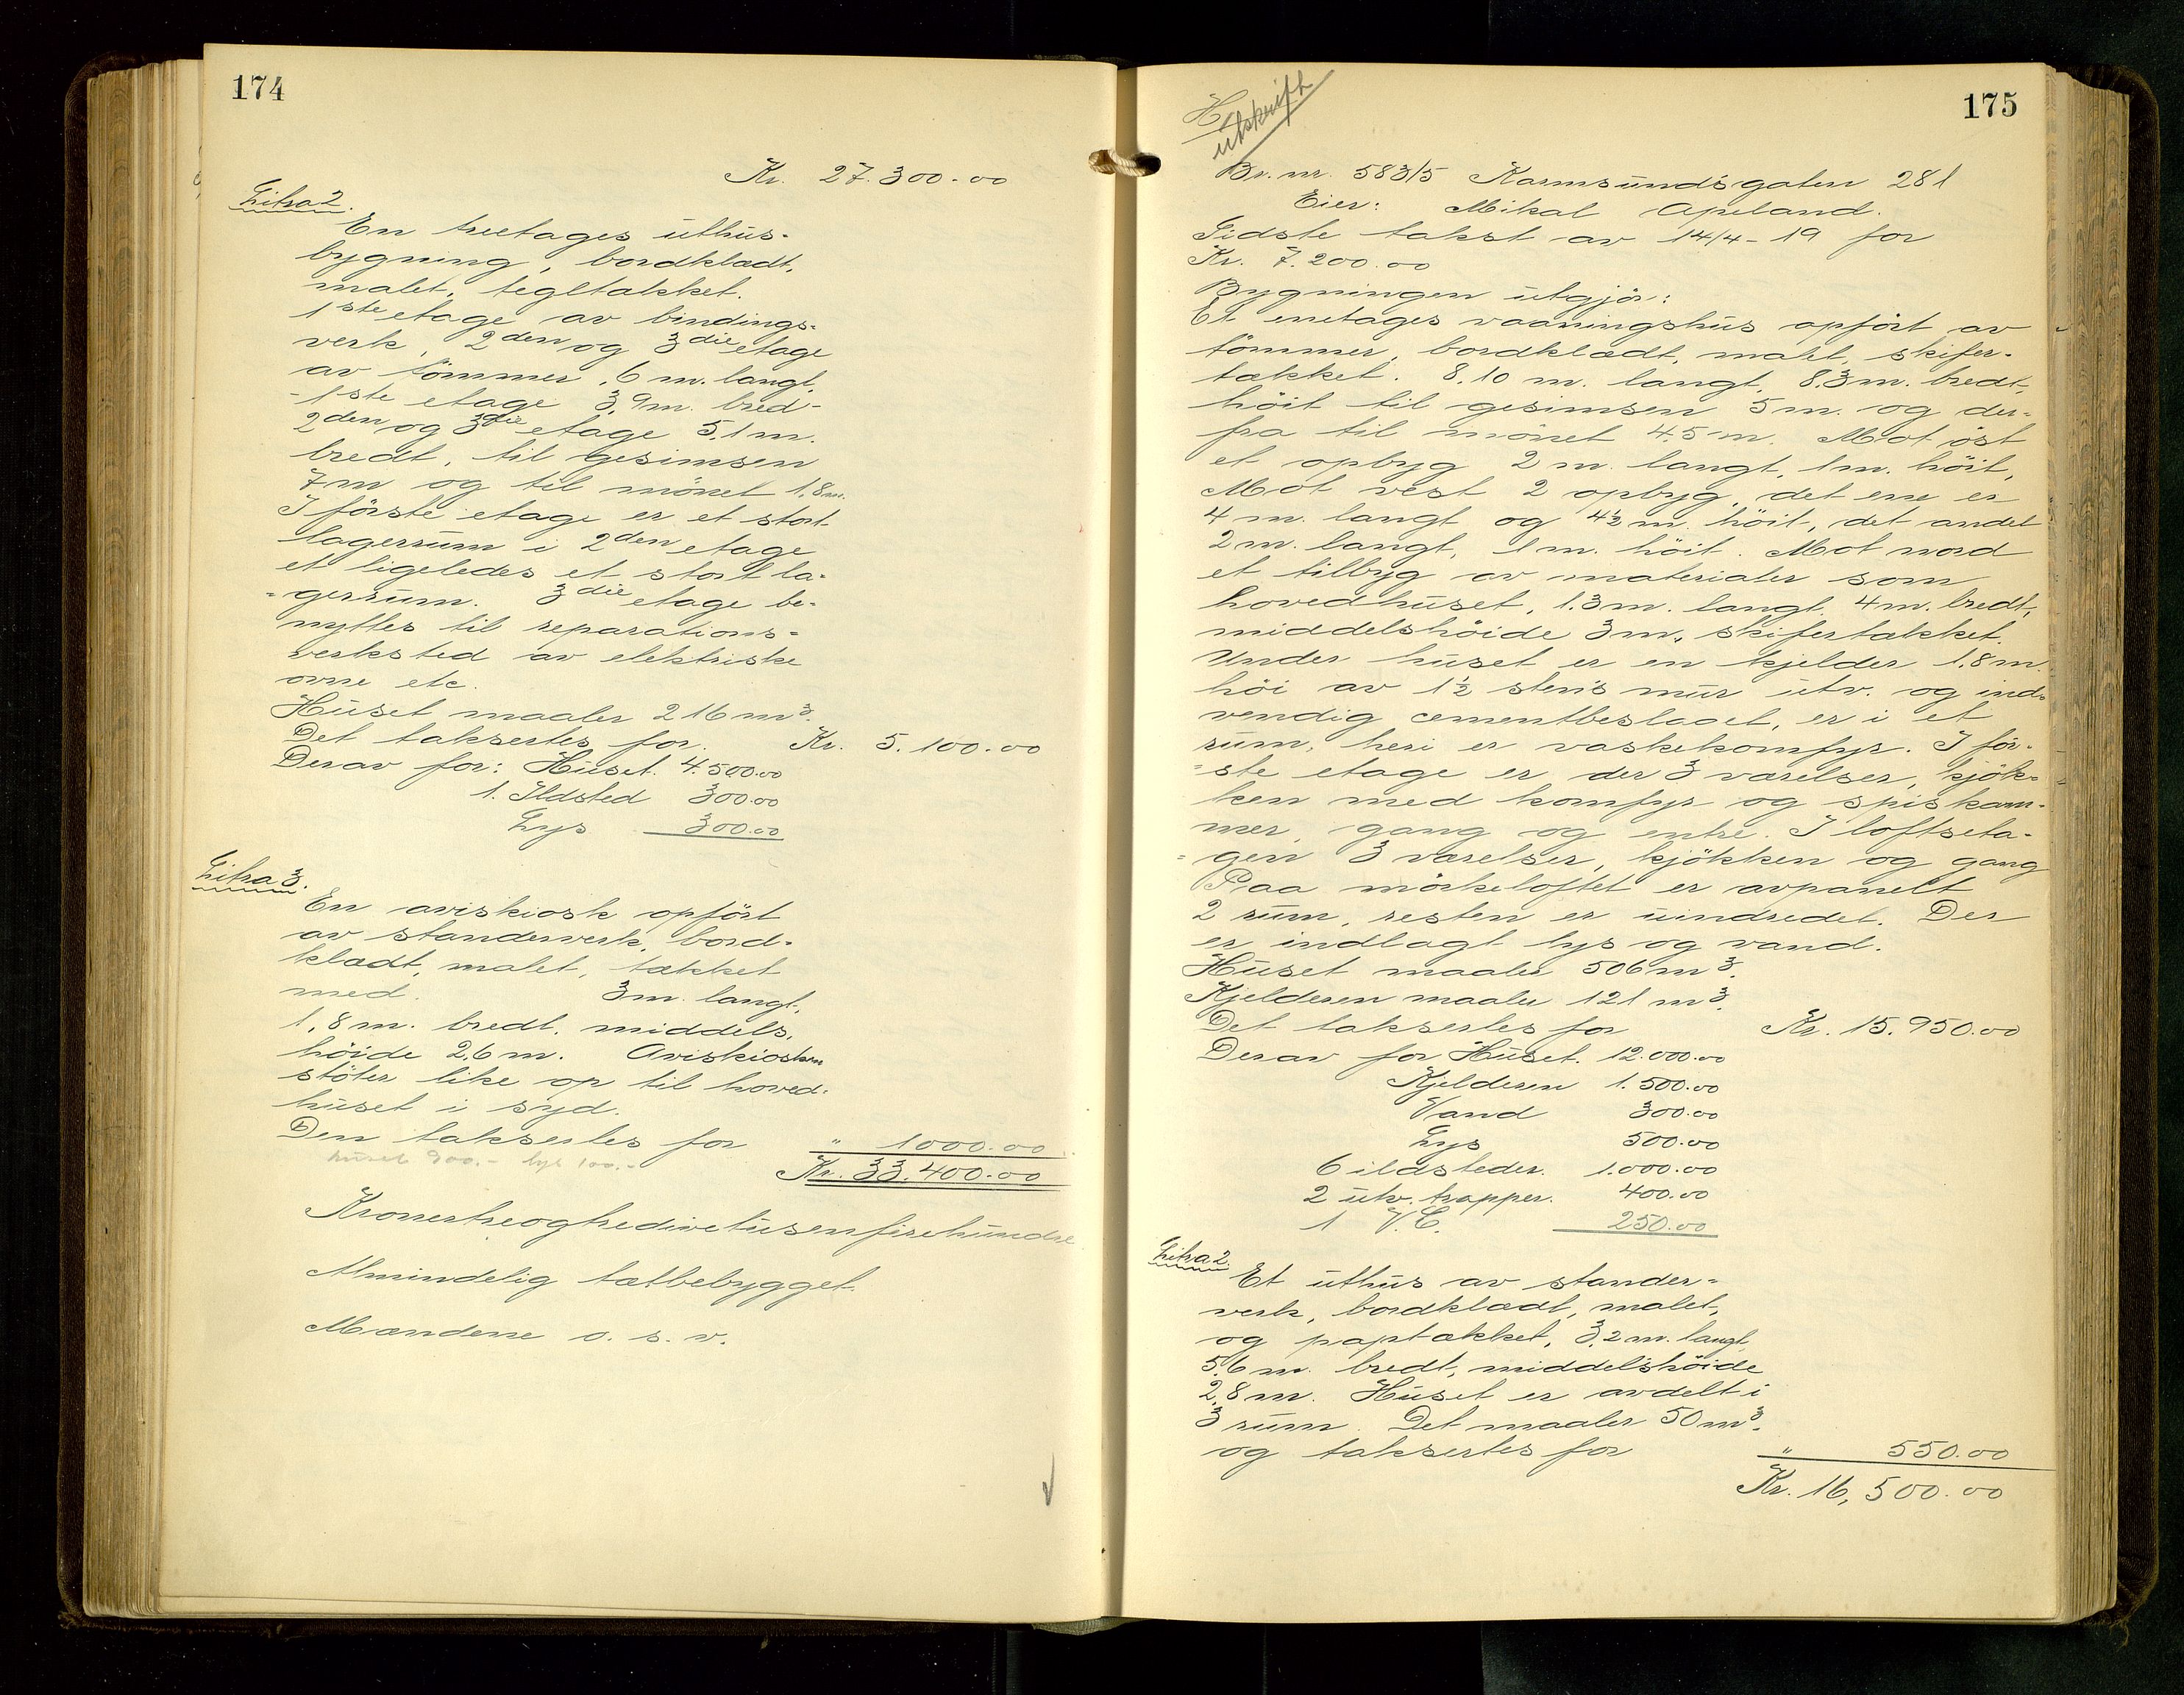 174
Kr. 27.300.00
Litra 2.
En treetages uthus-
bygning, bordklædt,
malet, tegltækket.
1ste etage av bindings-
verk, 2den og 3die etage
av tömmer, 6 m. langt,
1ste etage 3,9m. bred-
2den og 3die etage 5,1 m.
bredt, til gesimsen
7m og til mönet 1,8m.
I förste etage er et stort
lagerrum i 2den etage
et ligeledes et stort la-
gerrum. 3die etage be-
nyttes til reparations-
verksted av elektriske
ovne etc.
Huset maaler 216 m3.
Det taksertes for. Kr. 5.100.00
Derav for: Huset. 4.500.00
1. Ildsted 300.00
Lys 300.00
Litra 3.
En aviskiosk opfört
av standerverk, bord-
klædt, malet, tækket
med. 3m. langt,
1,8 m. bredt, middels,
höide 2,6 m. Aviskiosken
stöter like op til hoved-
huset i syd.
Den taksertes for " 1000.00
huset 900.- lys 100.-
Kr. 33.400.00
Kronertreogtredivetusenfirehundre
Almindelig tætbebygget.
Mændene o. s. v.
175
H
utskrift
Br. nr. 583/5 Karmsundsgaten 281
Eier: Mikal Apeland.
Sidste takst av 14/4-19 for
Kr. 7.200.00
Bygningen utgjör:
Et enetages vaaningshus opfört av
tömmer, bordklædt, malet, skifer-
tækket. 8,10 m. langt, 8,3m. bredt,
höit til gesimsen 5 m. og der-
fra til mönet 4,5 m. Mot öst
et opbyg 2 m. langt, 1m. höit,
Mot vest 2 opbyg, det ene er
4 m. langt og 4½ m. höit, det andet
2 m. langt, 1 m. höit. Mot nord
et tilbyg av materialer som
hovedhuset, 1.3 m. langt, 4m. bredt,
middelshöide 3 m, skifertækket.
Under huset er en kjelder 1,8 m.
höi av 1½ stens mur utv. og ind-
vendig cementbeslaaet, er i et
rum, heri er vaskekomfyr. I för-
ste etage er der 3 værelser, kjök-
ken med komfyr og spiskam-
mer, gang og entre. I loftseta-
gen 3 værelser, kjökken og gang
Paa mörkeloftet er avpanelt
2 rum, resten er uindredet. Der
er indlagt lys og vand.
Huset maaler 506 m3.
Kjelderen maaler 121 m3.
Det taksertes for Kr. 15.950.00
Derav for Huset. 12.000.00
Kjelderen 1.500.00
Vand 300.00
Lys 500.00
6 ildsteder. 1.000.00
2 utv. trapper. 400.00
1 V.C. 250.00
Litra 2.
Et uthus av stander-
verk, bordklædt, malet,
og paptækket, 3,2 m. langt,
5,6 m. bredt, middelshöide
2,8 m. Huset er avdelt i
3 rum. Det maaler 50 m3.
og taksertes for " 550.00
Kr. 16,500.00